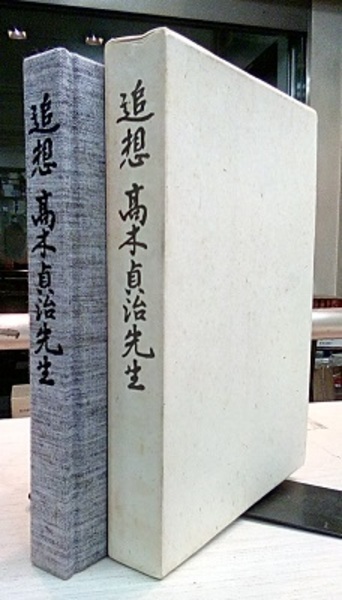 追想 高木貞治先生
追想 髙木貞治先生